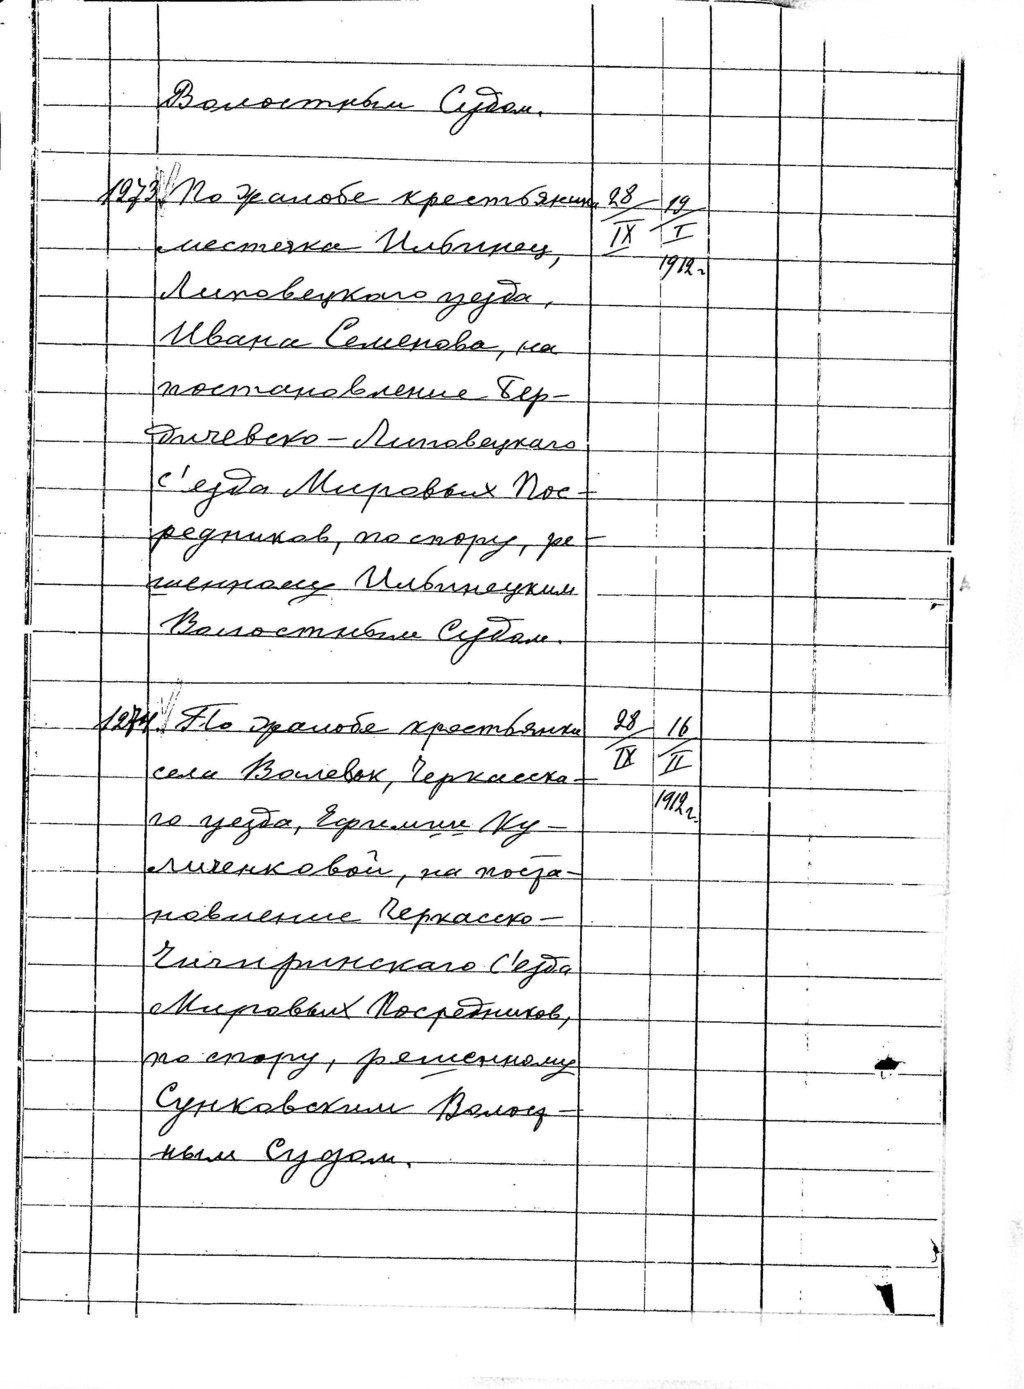 Волостным Судом.
1273. По жалобе крестьянина 28/IX 19/I 1912 г
местечка Ильинец,
Липовецкаго уезда,
Ивана Семенова, на
постановление Бер-
дичевско-Липовецкаго
с'езда Мировых Пос-
редников, по спору, ре-
шенному Ильинецким
Волостным Судом.
1274. По жалобе крестьянки 28/IX 16/II 1912 г.
села Валевок, Черкасска-
го уезда, Ефимии Ку-
личенковой, на поста-
новление Черкасско-
Чигиринскаго С'езда
Мировых Посредников,
по спору, решенному
Сунковским Волост-
ным Судом.